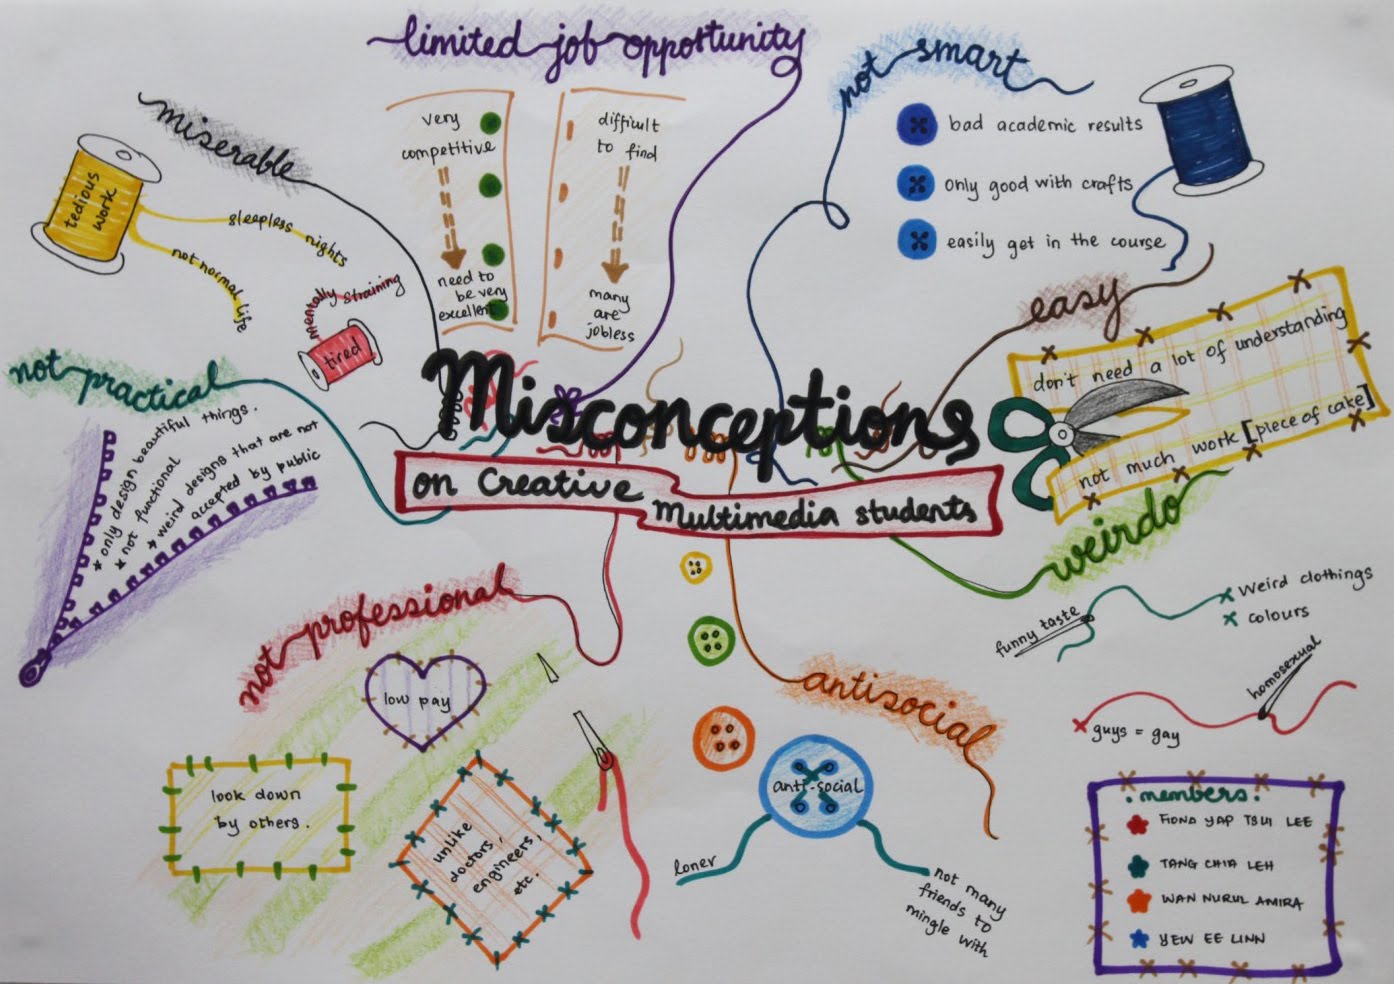 limited job opportunity
very
competitive
need to
be very
excellent
difficult
to find
many
are
jobless
not smart
bad academic results
only good with crafts
easily get in the course
miserable
tedious
work
sleepless nights
not normal life
mentally straining
tired
easy
don't need a lot of understanding
not much work [piece of cake]
Misconceptions
on Creative
Multimedia students
not practical
* only design beautiful things.
* not functional
* weird designs that are not
accepted by public
weirdo
funny taste
weird clothings
colours
homosexual
guys = gay
not professional
low pay
look down
by others.
unlike
doctors,
engineers,
etc.
antisocial
anti-social
loner
not many
friends to
mingle with
. members .
FIONA YAP TSUI LEE
TANG CHIA LEH
WAN NURUL AMIRA
YEW EE LINN